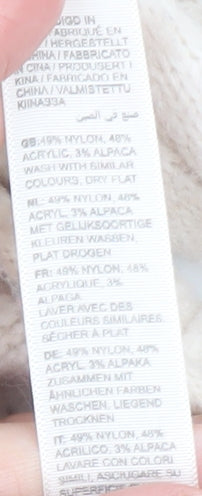 DIGO IN
FABRIQUÉ EN
/ HERGESTELLT
CHINA / FABBRICATO
IN CINA / PRODUSERT I
KINA / FABRICADO EN
CHINA / VALMISTETTU
KIINASSA
صنع في الصين
GB: 49% NYLON, 48%
ACRYLIC, 3% ALPACA
WASH WITH SIMILAR
COLOURS, DRY FLAT
NL: 49% NYLON, 48%
ACRYL, 3% ALPACA
MET GELIJKSOORTIGE
KLEUREN WASSEN,
PLAT DROGEN
FR: 49% NYLON, 48%
ACRYLIQUE, 3%
ALPAGA
LAVER AVEC DES
COULEURS SIMILAIRES,
SÉCHER À PLAT
DE: 49% NYLON, 48%
ACRYL, 3% ALPAKA
ZUSAMMEN MIT
ÄHNLICHEN FARBEN
WASCHEN, LIEGEND
TROCKNEN
IT: 49% NYLON, 48%
ACRILICO, 3% ALPACA
LAVARE CON COLORI
SIMILI, ASCIUGARE SU